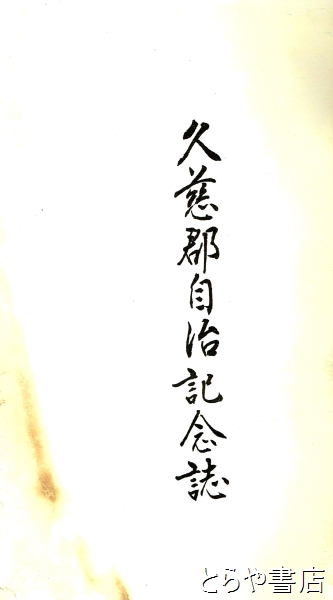 久慈郡自治記念誌
とらや書店